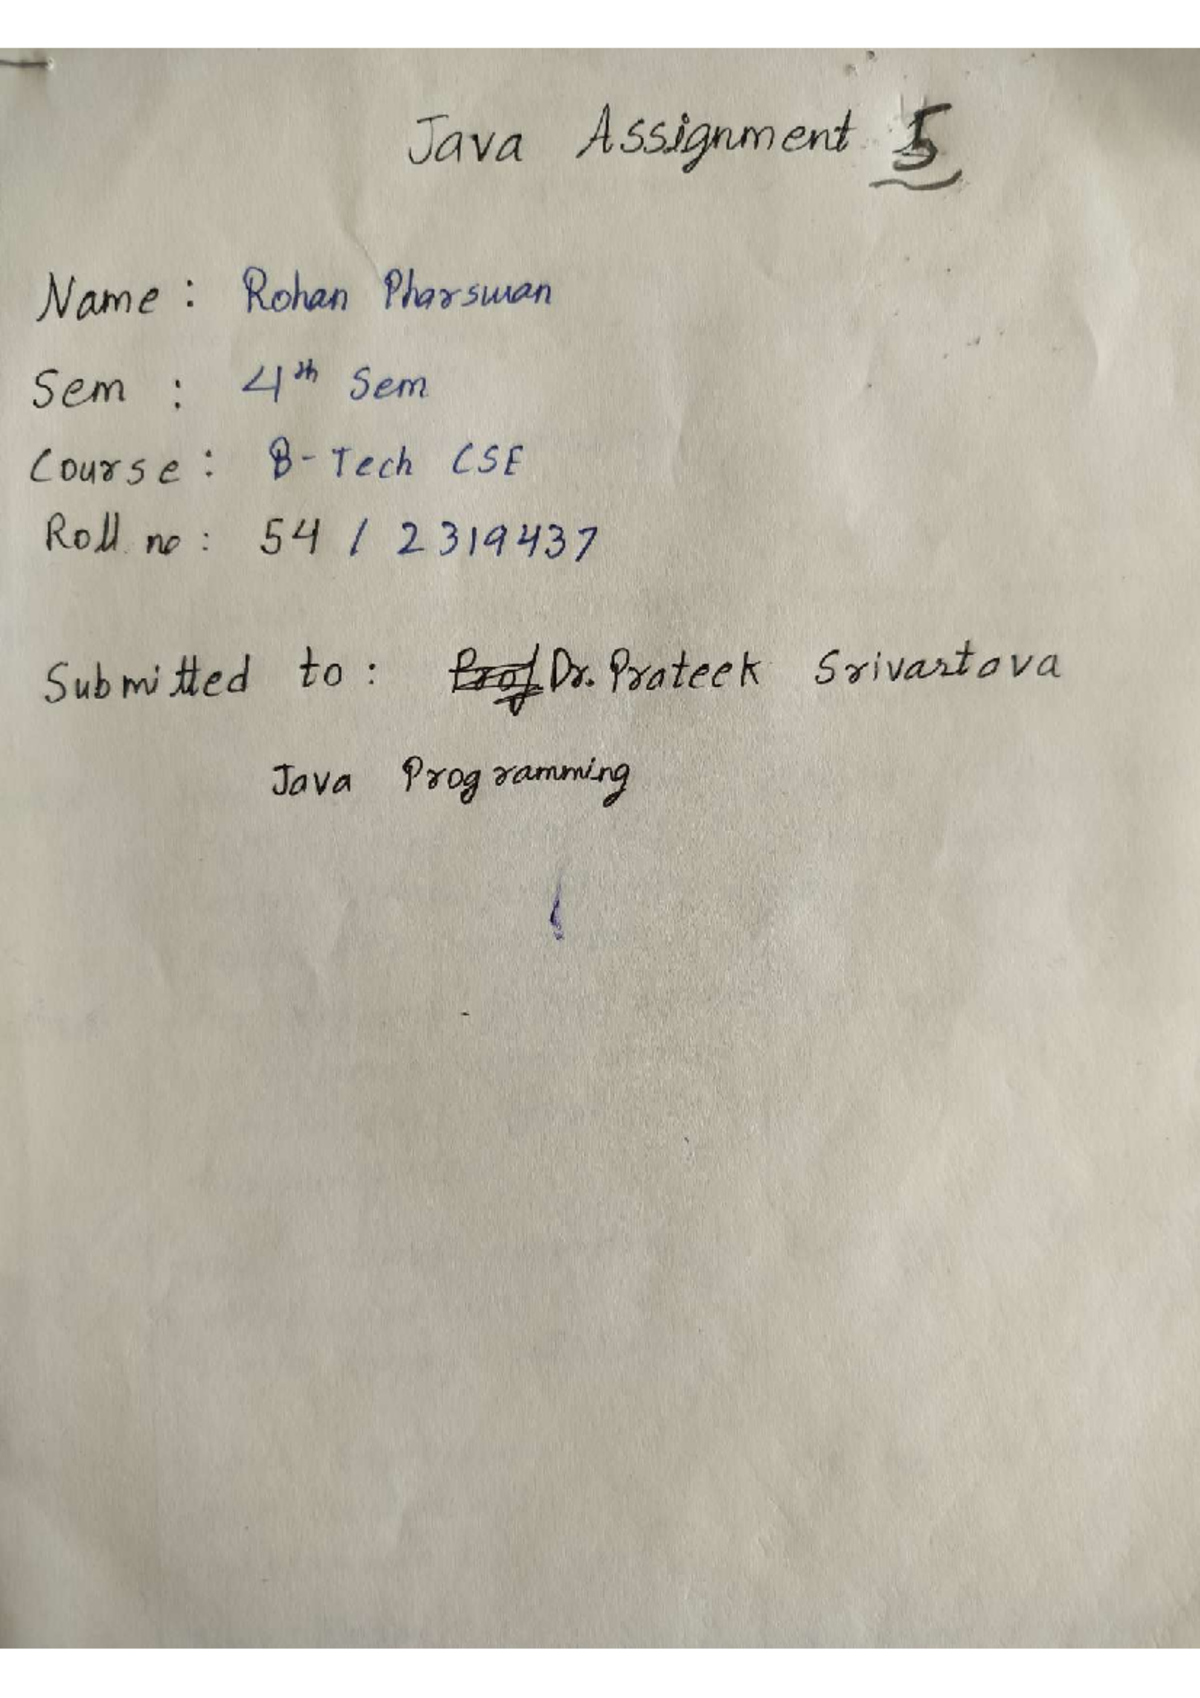 Java Assignment 5
Name : Rohan Pharswan
Sem : 4th Sem
Course : B-Tech CSE
Roll no : 54 / 2319437
Submitted to : Prof Dr. Prateek Srivastava
Java Programming